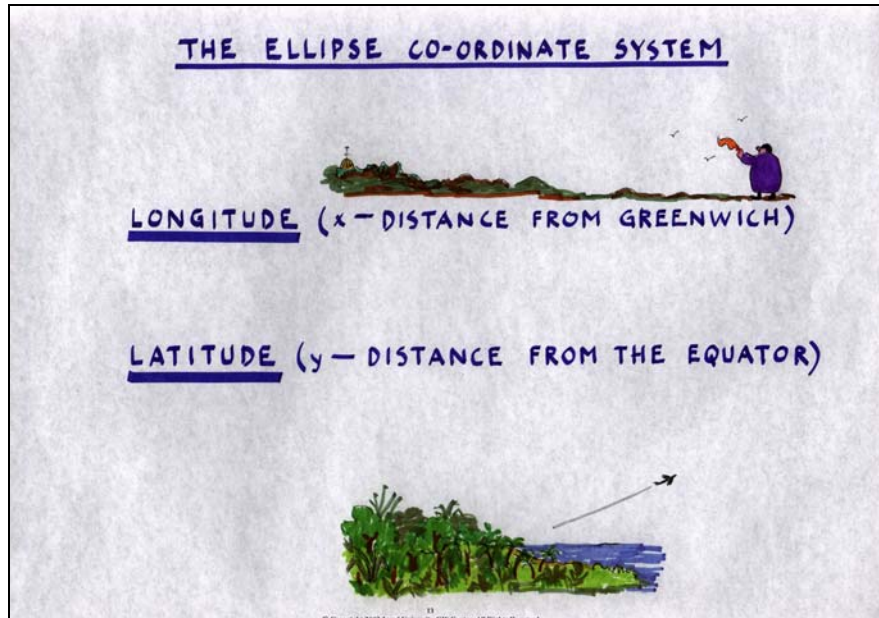 THE ELLIPSE CO-ORDINATE SYSTEM
LONGITUDE (x — DISTANCE FROM GREENWICH)
LATITUDE (y — DISTANCE FROM THE EQUATOR)
13